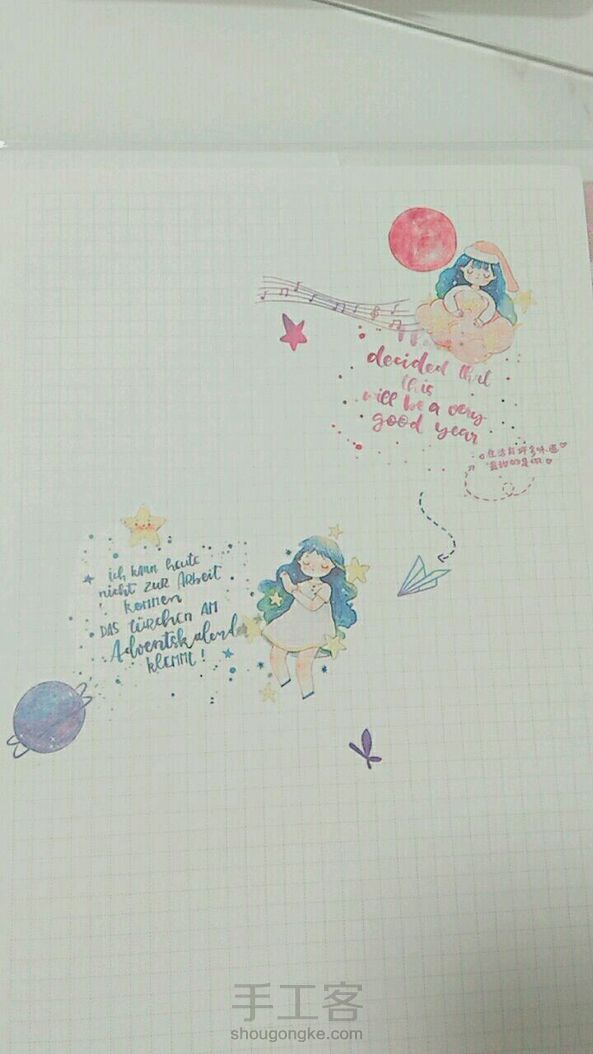 decided that
this
will be a very
good year
生活有好多味道
最甜的是你
ich kann heute
nicht zur Arbeit
kommen
DAS TÜRCHEN AM
Adventskalender
klemmt!
手工客
shougongke.com